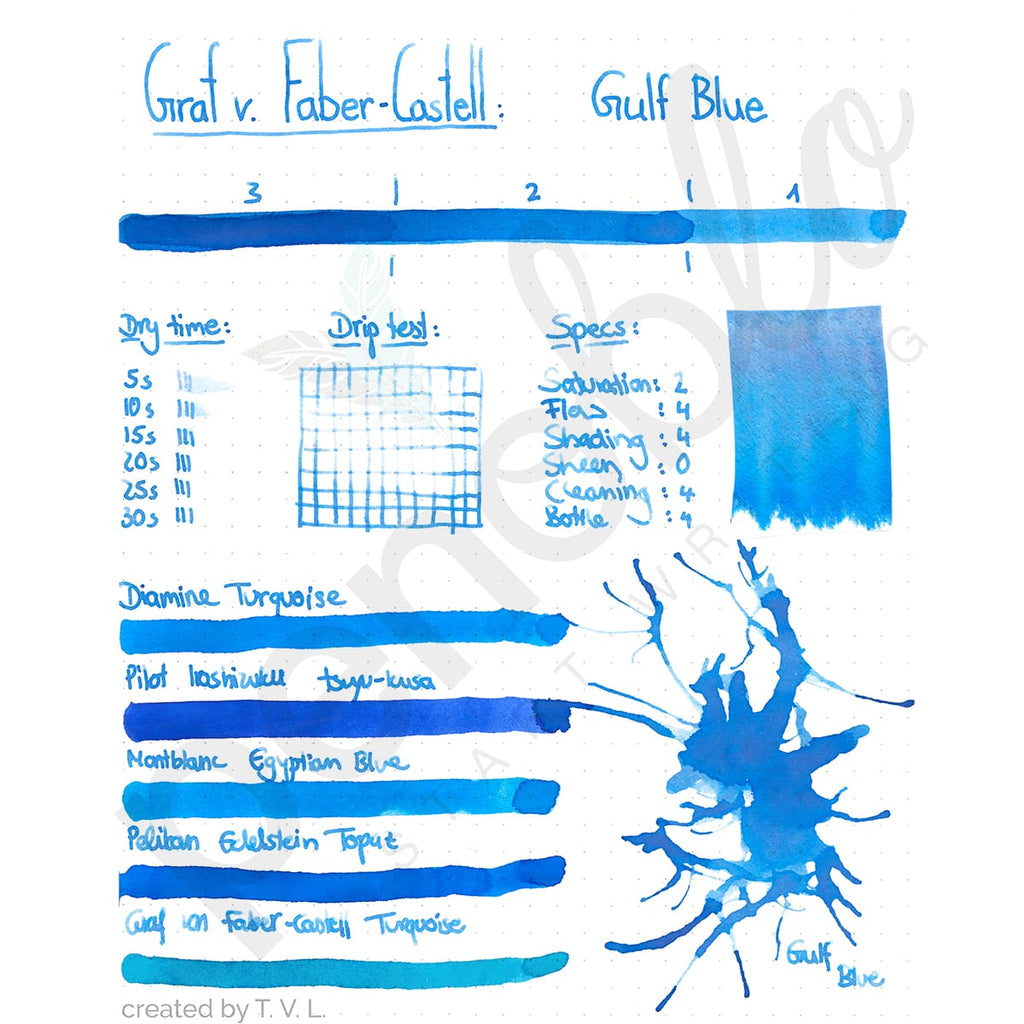 Graf v. Faber-Castell: Gulf Blue
3 | 2 | 1
Dry time:
5s
10s
15s
20s
25s
30s
Drip test:
Specs:
Saturation: 2
Flow : 4
Shading : 4
Sheen : 0
Cleaning : 4
Bottle : 4
Diamine Turquoise
Pilot Iroshizuku tsuyu-kusa
Montblanc Egyptian Blue
Pelikan Edelstein Topaz
Graf von Faber-Castell Turquoise
Gulf
Blue
penoblo
START WRITING
created by T. V. L.